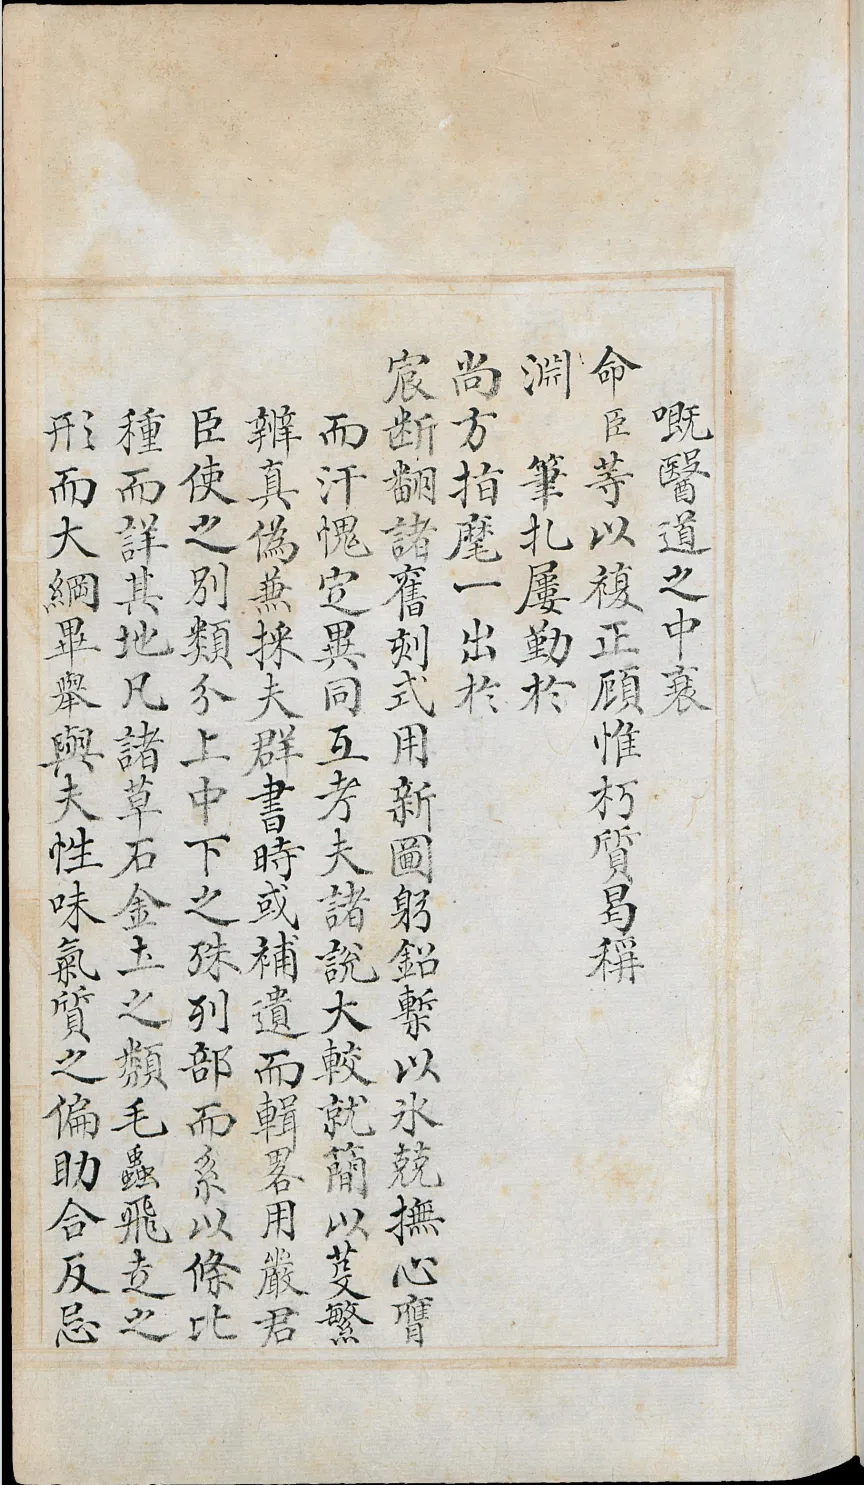 嘅醫道之中衰
命臣等以複正顧惟朽質曷稱
淵　筆扎屢勤於
尚方指麾一出於
宸断翻諸舊刻式用新圖躬鉛槧以氷兢撫心膺
而汗愧定異同互考夫諸說大較就簡以芟繁
辨真偽兼採夫群書時或補遺而輯畧用嚴君
臣使之別類分上中下之殊列部而系以條比
種而詳其地凡諸草石金土之類毛蟲飛走之
形而大綱畢舉與夫性味氣質之偏助合反忌